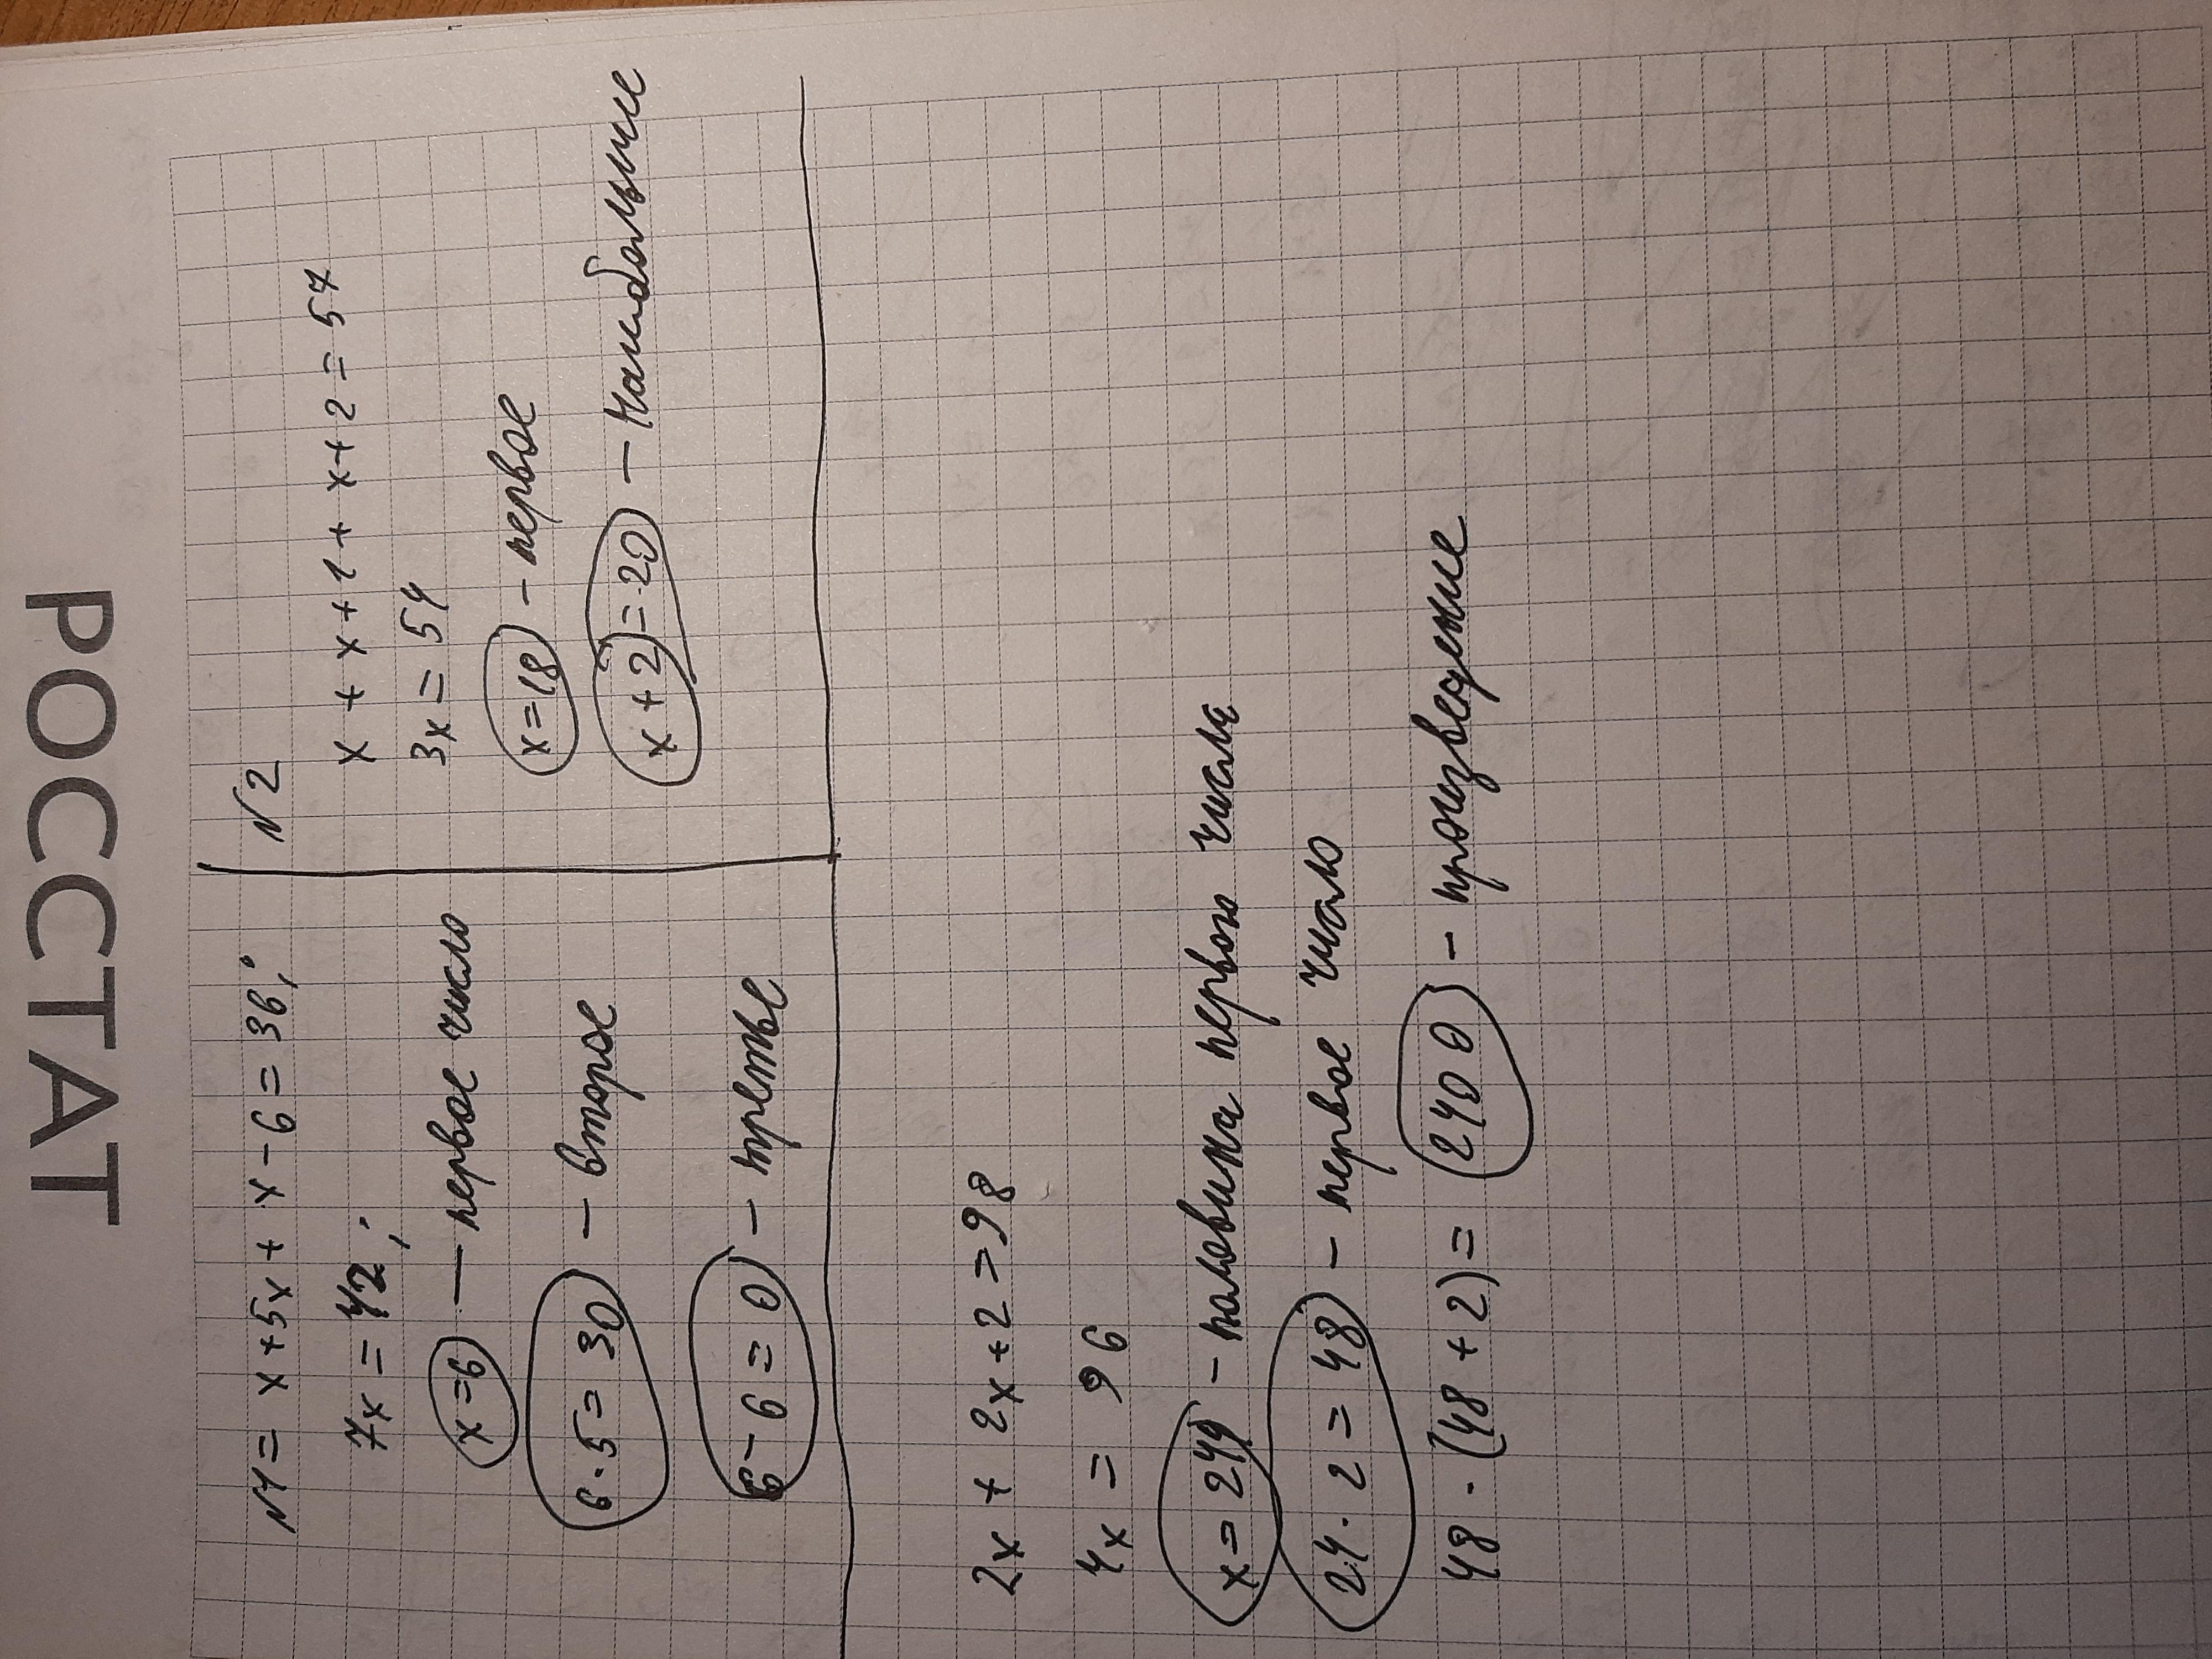 РОССТАТ
N1 = x + 5x + x - 6 = 36;
7x = 42;
x = 6 — первое число
6 · 5 = 30 — второе
6 - 6 = 0 — третье
N2
x + x + 1 + x + 2 = 57
3x = 54
x = 18 — первое
x + 2 = 20 — наибольшее
2x + 2x + 2 = 98
4x = 96
x = 24 — половина первого числа
24 · 2 = 48 — первое число
48 · (48 + 2) = 2400 — произведение